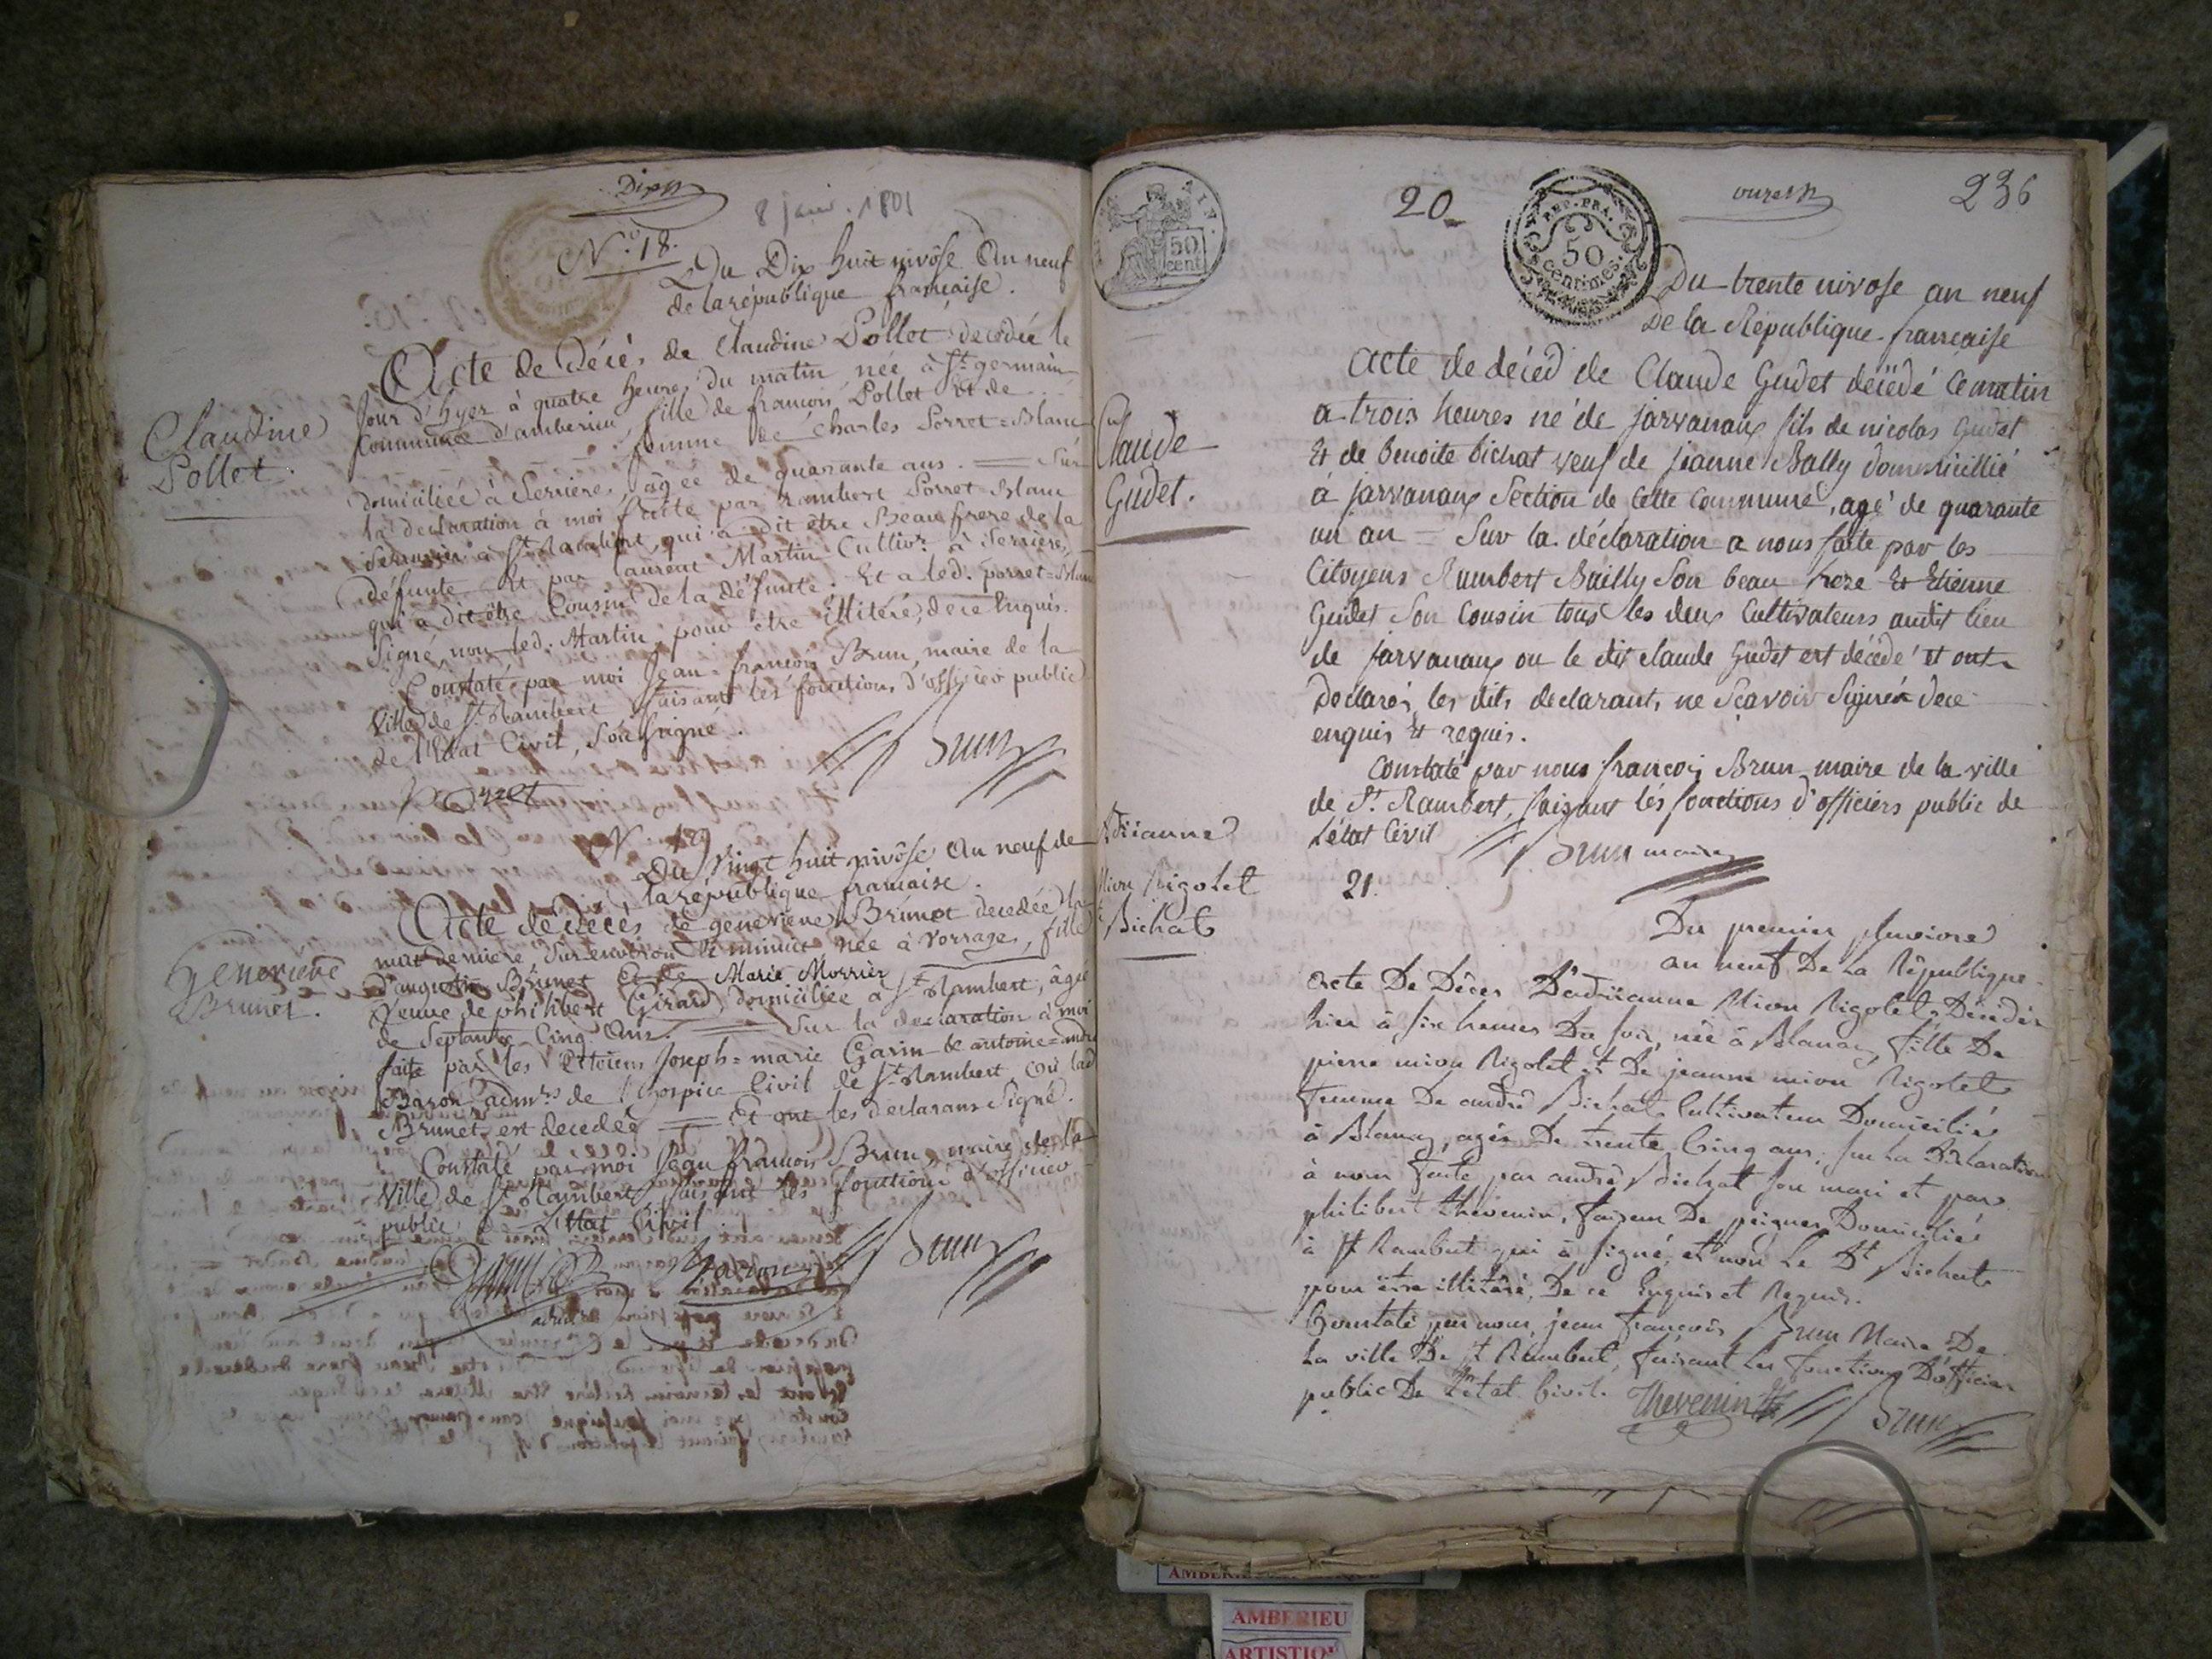 Dix
8 janv. 1801
N.o 18.
Du Dix huit nivôse An neuf
de la république francaise.
Claudine
Pollet.
Acte de Décès de Claudine Pollet decedée le
Jour d'hyer à quatre heures du matin née à St. germain
Commune d'amberieu, fille de francois Pollet Et de
femme de Charles Porret=Blanc
domiciliée à Serrieres, agée de quarante ans. = Sur
la declaration à moi faite par Rambert Porret=Blanc
Serrurier à St. Rambert, qui à dit être Beaufrere de la
défunte. Et par laurent Martin Cultivr. à Serrieres,
qui à dit être Cousin de la défunte. Et a led. porret=Blanc
Signé, non led. Martin, pour être illiteré, de ce Enquis.
Constaté par moi Jean-françois Brun, maire de la
Ville de St. Rambert faisant les fonctions d'officier public
de l'Etat Civil, Soussigné.
Brun
Porret
N.o 19
Du Vingt huit nivôse An neuf de
la république francaise.
Genevieve
Brunet.
Acte de decès de genevieve Brunet decedée la
nuit derniere, Sur environ le minuit née à Vorrages, fille
d'augustin Brunet Et de Marie Morrier
Veuve de philibert Girard, domiciliée à St. Rambert, âgée
de Septante-Cinq Ans. = Sur la declaration à moi
faite par les Citoiens Joseph=marie Garin & antoine=andré
Baron admrs. de l'hospice Civil de St. Rambert où lad.
Brunet est decedée = Et ont les declarans Signé.
Constaté par moi Jean francois Brun, maire de la
Ville de St. Rambert, faisant les fonctions d'officier
public de L'Etat Civil.
Garin Baron Brun
50
cent.
20
REP. FRA.
50
centimes.
onze
236
Du trente nivose an neuf
De la République francaise
Claude
Gudet.
acte de décéd de Claude Gudet décédé ce matin
a trois heures né de jarvanaux fils de nicolas Gudet
Et de Benoite bichat veuf de jeanne Bally domicillié
à jarvanaux Section de cette commune, agé de quarante
un an = Sur la déclaration a nous faite par les
Citoyens Rambert Bailly Son beau frere Et Etienne
Gudet Son Cousin tous les deux Cultivateurs audit lieu
de jarvanaux ou le dit claude Gudet est décédé et ont
Declarés les dits declarants ne sçavoir Signér dece
enquis Et requis.
Constaté par nous francois Brun maire de la ville
de St. Rambert, faisant lés fonctions d'officiers public de
L'état Civil
Brun maire
21.
Adrianne
Mion Rigolet
Bichat
Du premier pluviose
an neuf De La République
Acte De Décès D'adrianne Mion Rigolet, Décédée
hier à six heures Du soir, née à Blanaz, fille De
pierre mion Rigolet et De jeanne mion Rigolet
femme De andré Bichat Cultivateur Domicilié
à Blanaz, agée De trente Cinq ans, sur La Déclaration
à nous faite par andré Bichat son mari et par
philibert thevenin, faiseur De peignes Domicilié
à St. Rambert qui à signé, et non Le Dt. Bichat
pour être illitéré, De ce Enquis et Requis.
Constaté par nous jean françois Brun Maire De
La ville De St Rambert, faisant Les fonctions D'officier
public De L'état Civil.
Thevenin Brun
AMBERIEU
ARTISTIQ